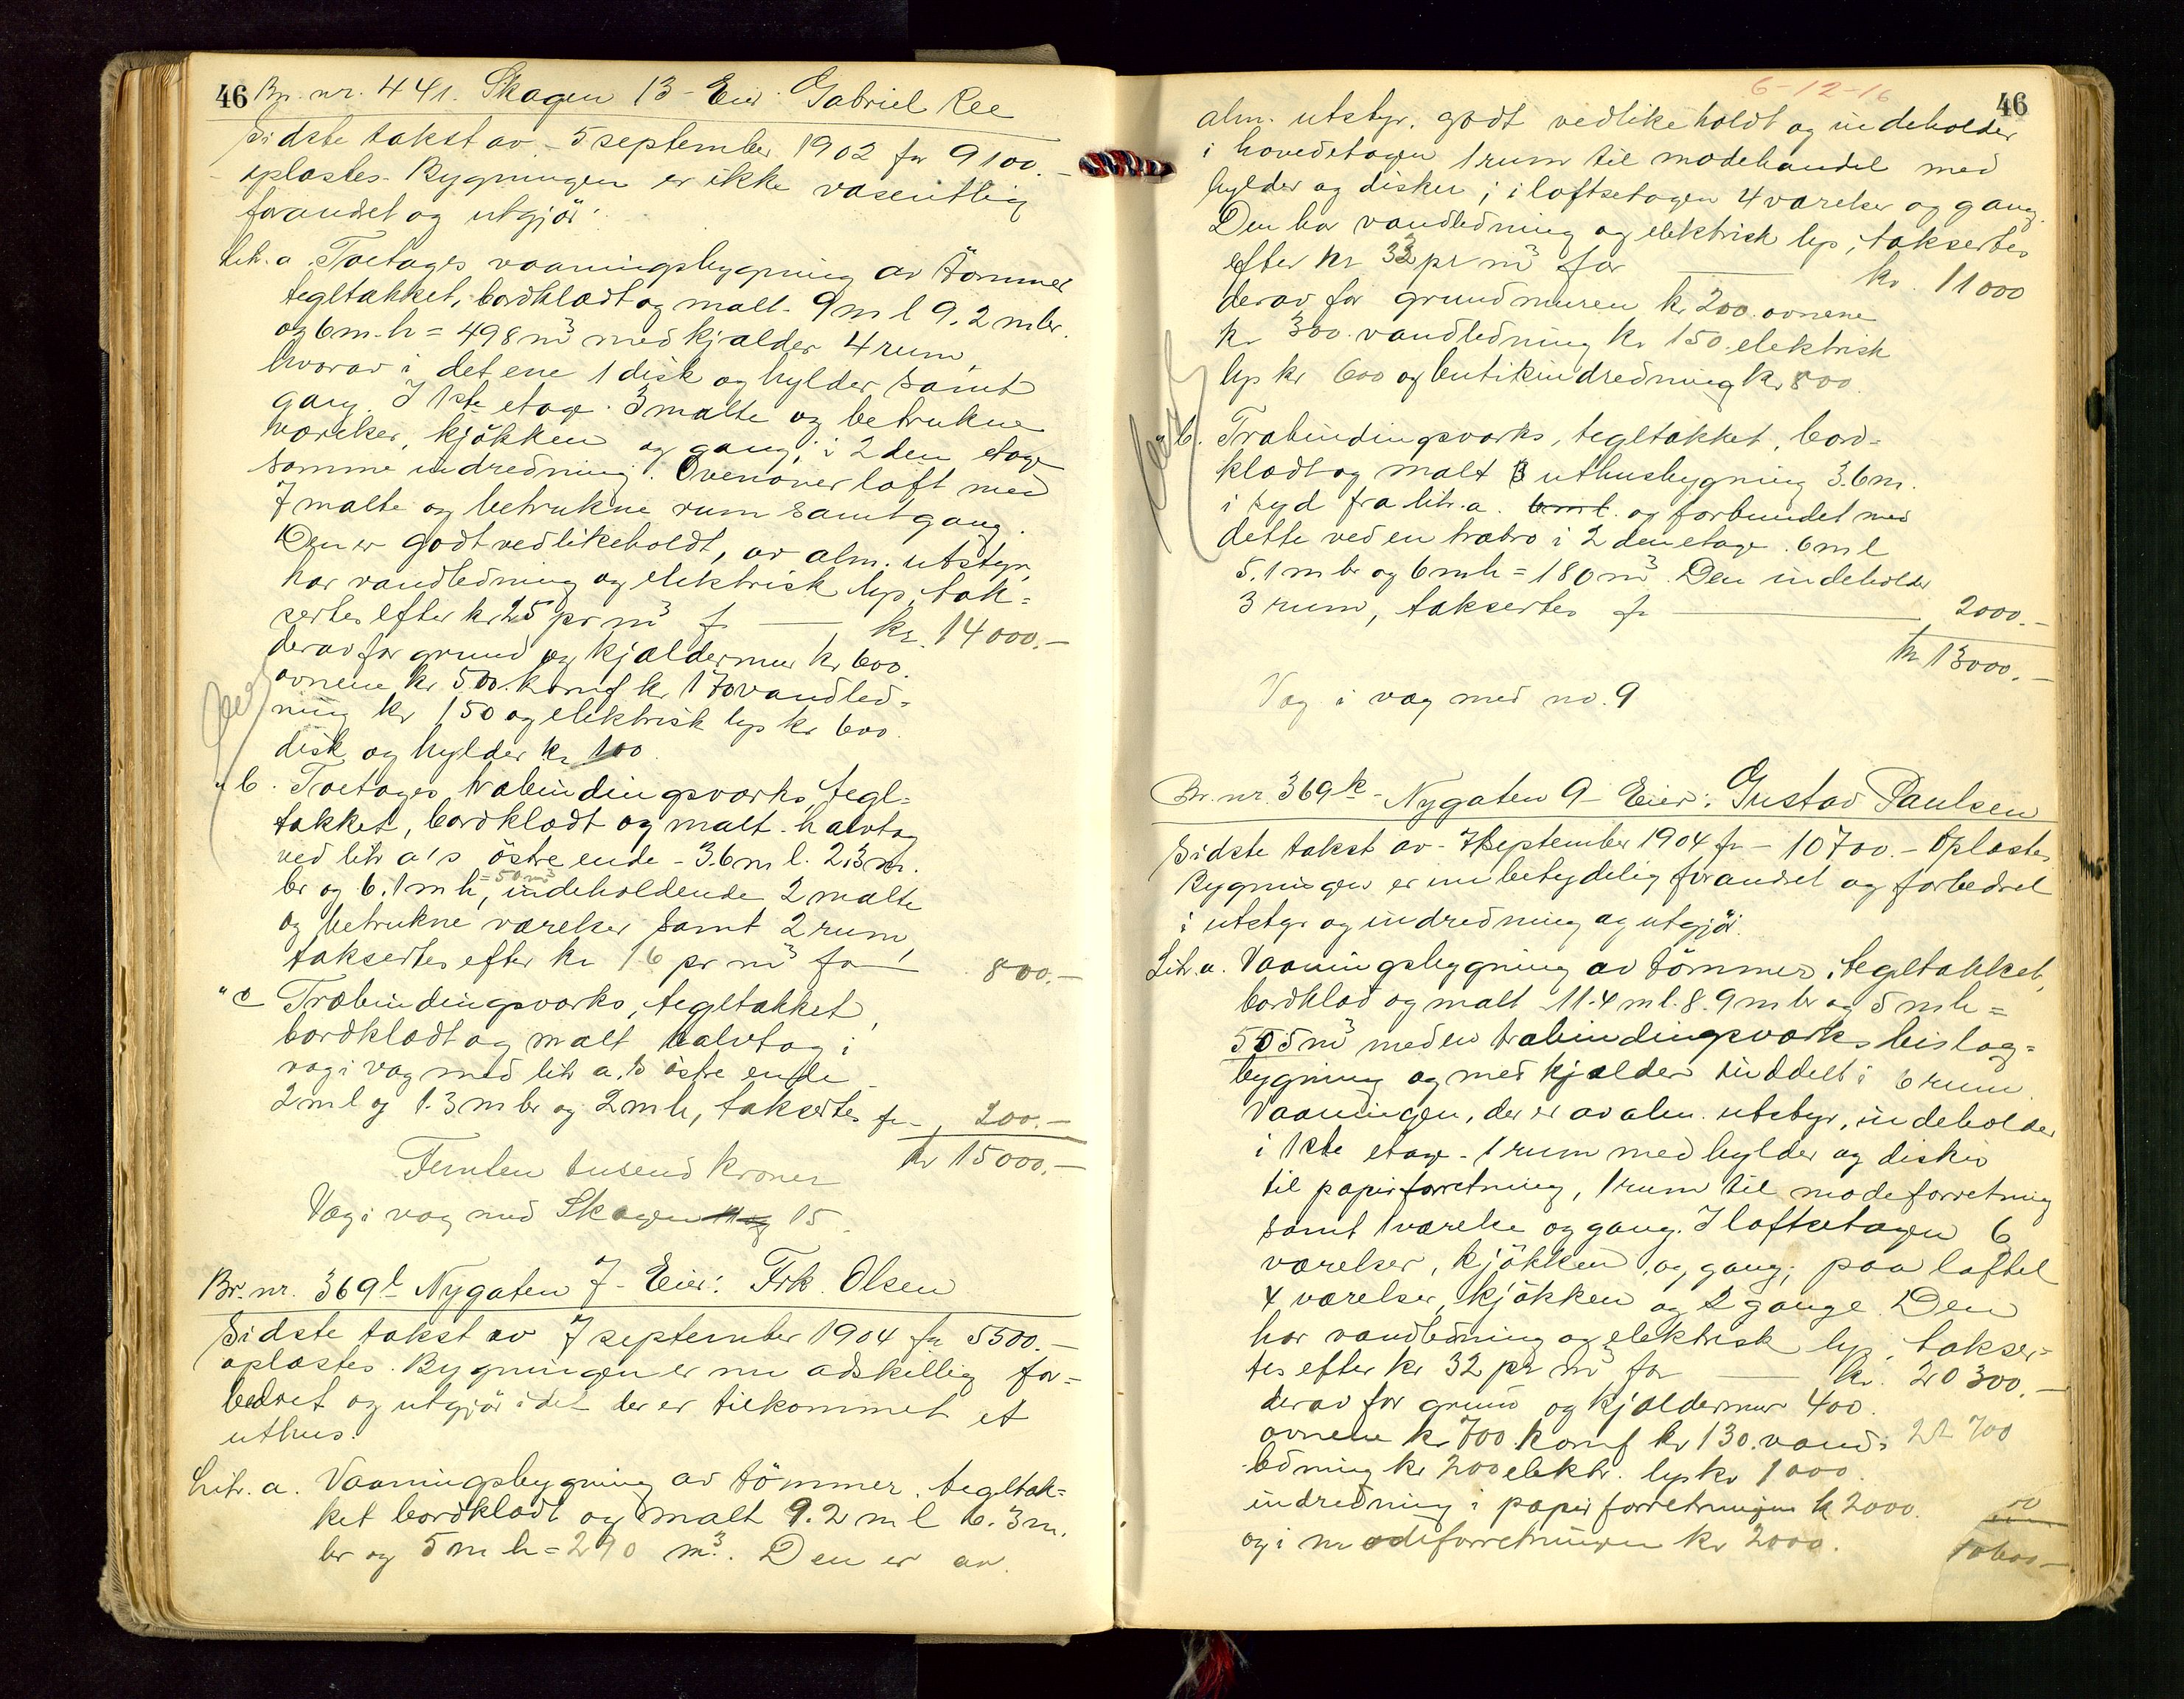 46 Br. nr. 441. Skagen 13 - Eier: Gabriel Ree
Sidste takst av - 5 september 1902 for 9100.-
oplæstes. Bygningen er ikke væsentlig
forandret og utgjör:
Litr. a. Toetages vaaningsbygning av tömmer
tegltækket, bordklædt og malt. 9 m l 9.2 m br.
og 6 m. h = 498 m³ med kjælder 4 rum
hvorav i det ene 1 disk og hylder samt
gang. I 1ste etage. 3 malte og betrukne
værelser, kjökken og gang; i 2den etage
samme indredning. Ovenover loft med
7 malte og betrukne rum samt gang.
Den er godt vedlikeholdt, av alm. utstyr,
har vandledning og elektrisk lys, tak=
sertes efter kr 25 pr m³ fr — kr. 14000.-
derav for grund og kjældermur kr 600.
ovnene kr 500. komf kr 170 vandled=
ning kr 150 og elektrisk lys kr 600.
disk og hylder kr 100
" b. Toetages træbindingsværks, tegl=
tækket, bordklædt og malt. halvtag
ved litr a's östre ende - 3.6 m l. 2.3 m.
br og 6.1 m h, = 50 m³ indeholdende 2 malte
og betrukne værelser samt 2 rum,
taksertes efter kr 16 pr m³ for — 800.-
" c Træbindingsværks, tegltækket,
bordklædt og malt halvtag i
væg i væg med litr a.s östre ende
2 m l og 1.3 m br og 2 m h, taksertes fr - 200.-
kr 15000.-
Femten tusend kroner
Væg i væg med Skagen 15.
Br. nr. 369 l Nygaten 7 - Eier: Frk. Olsen
Sidste takst av 7 september 1904 fr 5500.-
oplæstes. Bygningen er nu adskillig for=
bedret og utgjör idet der er tilkommet et
uthus:
Litr. a. Vaaningsbygning av tömmer, tegltæk=
ket bordklædt og malt 9.2 m l 6.3 m.
br og 5 m h = 290 m³. Den er av
6-12-16
46
alm. utstyr. godt vedlikeholdt og indeholder
i hovedetagen 1 rum til modehandel med
hylder og disker; i loftsetagen 4 værelser og gang.
Den har vandledning og elektrisk lys; taksertes
efter kr 33 pr m³ for — kr. 11000
derav for grundmuren kr 200. ovnene
kr 300. vandledning kr 150. elektrisk
lys kr 600 og butikindredning kr 800.
" b. Træbindingsværks, tegltækket, bord=
klædt og malt uthusbygning 3.6 m.
i syd fra litr. a. 6 m l. og forbundet med
dette ved en træbro i 2den etage. 6 m l
5.1 m br og 6 m h = 180 m³. Den indeholder
3 rum, taksertes fr — 2000.-
kr 13000.-
Væg i væg med no. 9
Br. nr. 369 k - Nygaten 9 - Eier: Gustav Paulsen
Sidste takst av - 7 september 1904 fr - 10700.- oplæstes.
Bygningen er nu betydelig forandret og forbedret
i utstyr og indredning og utgjör:
Litr. a. Vaaningsbygning av tömmer, tegltækket,
bordklæd og malt 11.4 m l. 8.9 m br og 5 m h =
505 m³ med en træbindingsværks bislag=
bygning og med kjælder inddelt i 6 rum.
Vaaningen, der er av alm. utstyr, indeholder
i 1ste etage - 1 rum med hylder og disker
til papirforretning, 1 rum til modeforretning
samt 1 værelse og gang. I loftsetagen 6
værelser, kjökken og gang; paa loftet
4 værelser, kjökken og 2 gange. Den
har vandledning og elektrisk lys, takser=
tes efter kr 32 pr m³ for — kr. 20300.-
derav for grund og kjældermur 400.
ovnene kr 700. komf kr 130. vand= 21700
ledning kr 200 elektr. lys kr 1000.
indredning i papirforretningen kr 2000.
og i modeforretningen kr 2000.